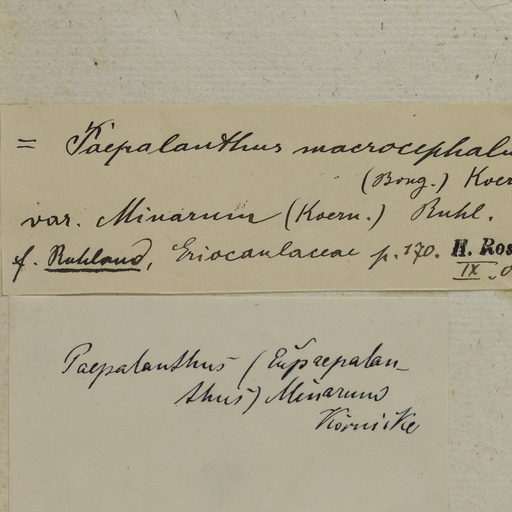 = Paepalanthus macrocephalu
(Bong.) Koer
var. Minarum (Koern.) Ruhl.
f. Ruhland, Eriocaulaceae p. 170. H. Ros
IX. 0
Paepalanthus (Eupaepalan-
thus) Minarum
Körnicke